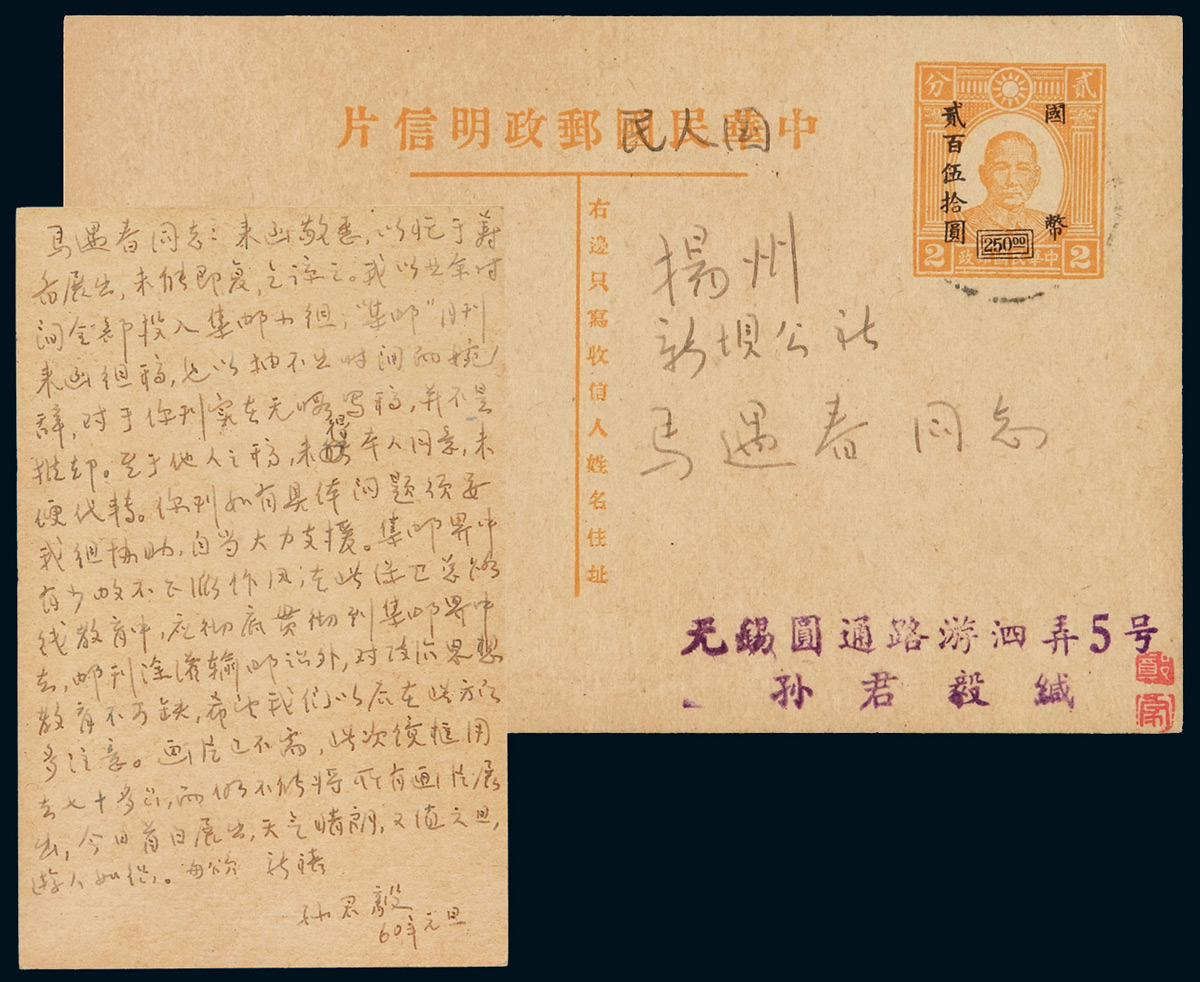 中華民國郵政明信片
民人国
貳分
國幣
貳百伍拾圓
250.00
2 中華民國郵政 2
右邊只寫收信人姓名住址
揚州
新坝公社
马遇春同志
无錫圓通路游泗弄5号
孙君毅缄
马遇春同志：来函敬悉，以忙于筹
备展出，未能即复，乞谅之。我以业余时
间全部投入集邮小组，“集邮”月刊
来函组稿，也以抽不出时间而婉
辞，对于你刊实在无暇写稿，并不是
推却。至于他人之稿，未得本人同意，未
便代转。你刊如有具体问题须要
我组协助，自当大力支援。集邮界中
有少数不正派作风，在此保卫总路
线教育中，应彻底贯彻到集邮界中
去，邮刊除灌输邮识外，对政治思想
教育不可缺，希望我们以后在此方面
多注意。画片已不需，此次镜框用
去七十多只，而仍不能将所有画片展
出，今日首日展出，天气晴朗，又值元旦，
游人如织。 新禧
孙君毅
60年元旦